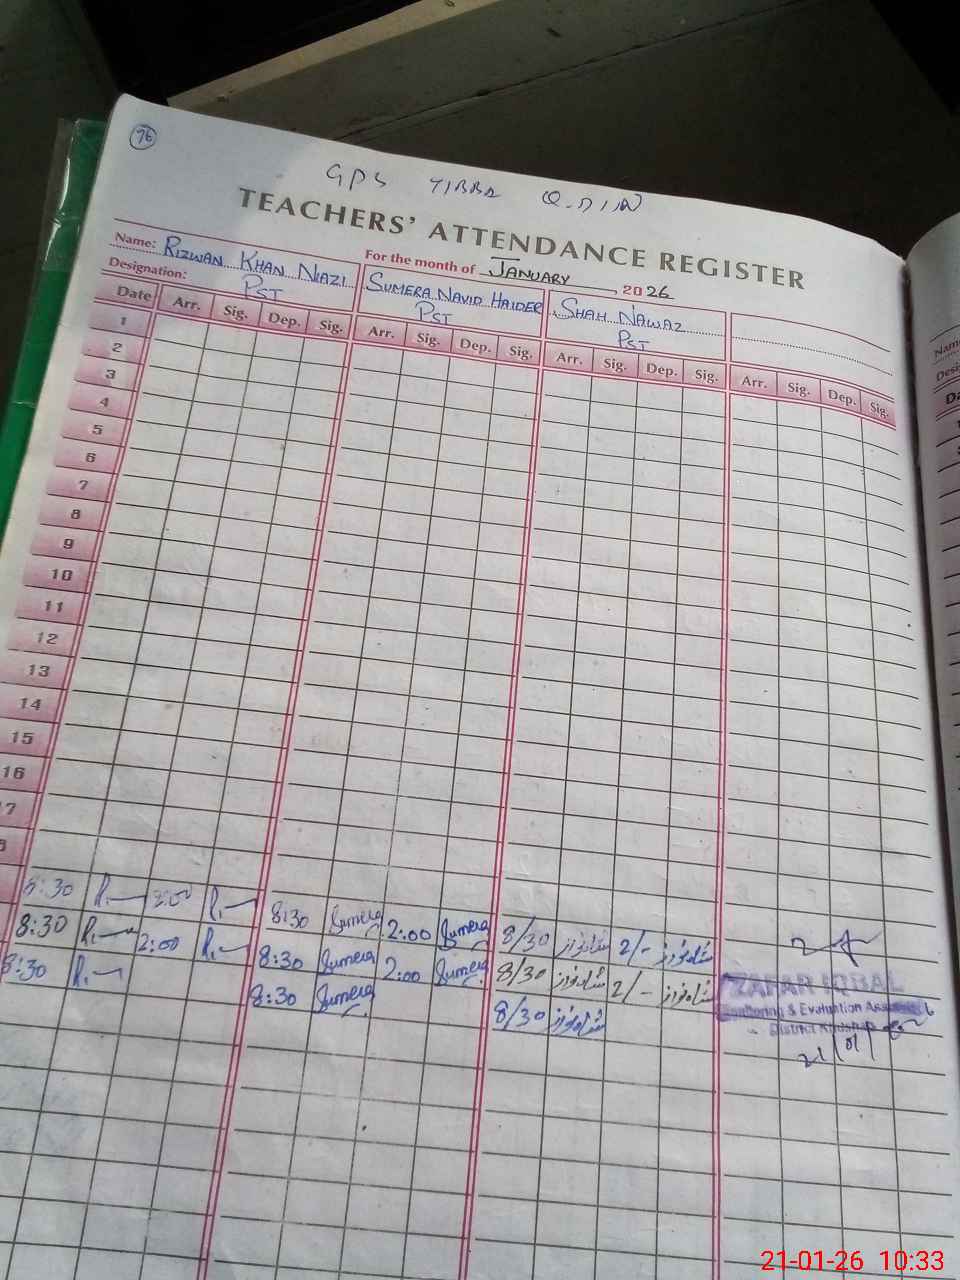 76
GPS TIBBA Q.DIN
TEACHERS' ATTENDANCE REGISTER
For the month of JANUARY, 2026
Name: RIZWAN KHAN NIAZI SUMERA NAVID HAIDER SHAH NAWAZ
Designation: PST PST PST
Date Arr. Sig. Dep. Sig. Arr. Sig. Dep. Sig. Arr. Sig. Dep. Sig. Arr. Sig. Dep. Sig.
1
2
3
4
5
6
7
8
9
10
11
12
13
14
15
16
17
8:30 2:00 8:30 Sumera 2:00 Sumera 8/30 شاہنواز 2/- شاہنواز
8:30 2:00 8:30 Sumera 2:00 Sumera 8/30 شاہنواز 2/- شاہنواز
8:30 8:30 Sumera 8/30 شاہنواز
ZAFAR IQBAL
Monitoring & Evaluation Assistant
District
21/01/26
21-01-26 10:33